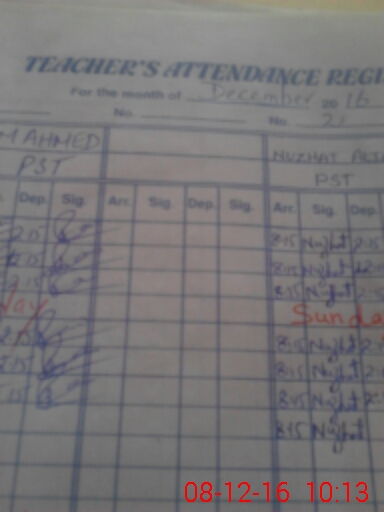 TEACHER'S ATTENDANCE REGI
For the month of December 2016
No. No. 21
M AHMED NUZHAT
PST PST
Dep. Sig. Arr. Sig. Dep. Sig. Arr. Sig. Dep
2.15 8.15 Nuzhat 2.15
2.15 8.15 Nuzhat
2.15 8.15 Nuzhat
day Sunda
2.15 8.15 Nuzhat
2.15 8.15 Nuzhat
15 8.15 Nuzhat
8.15 Nuzhat
08-12-16 10:13